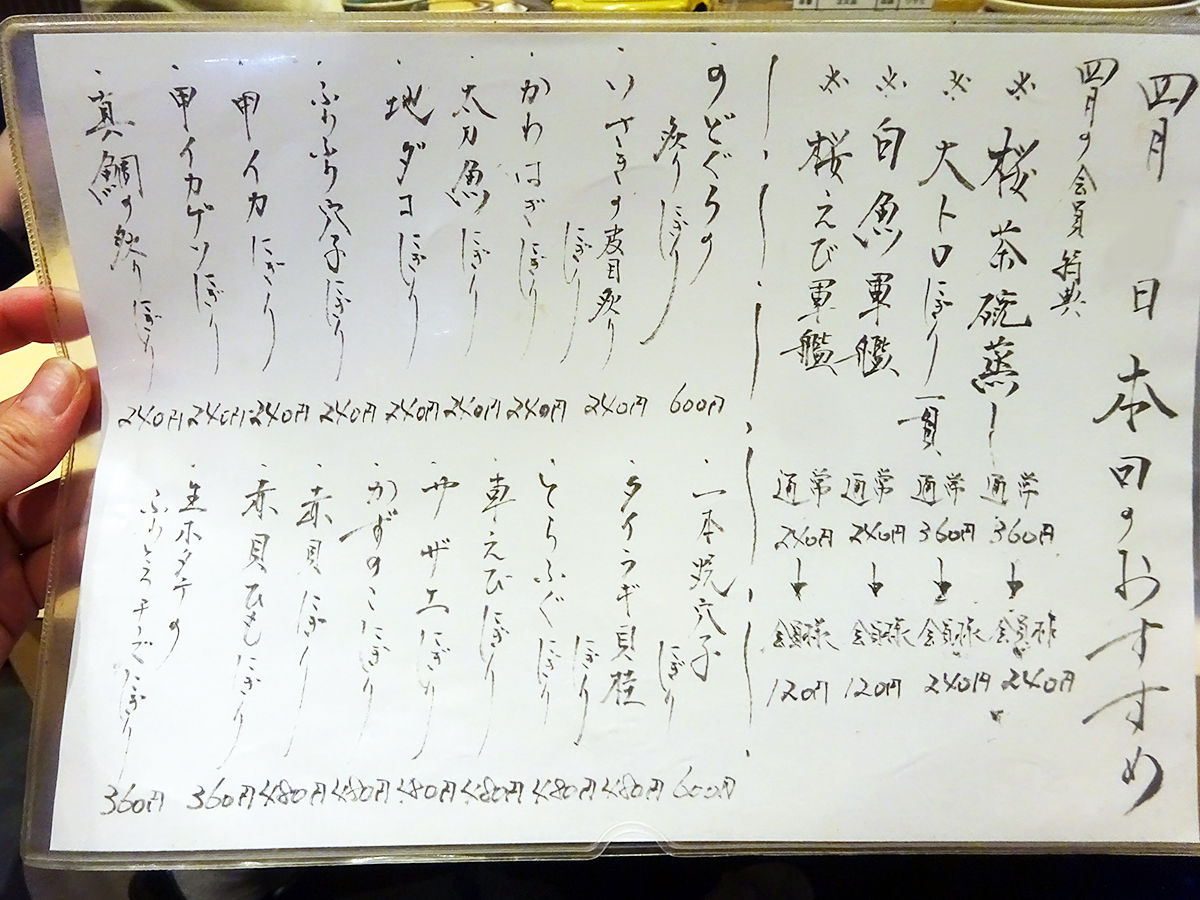 四月 日 本日のおすすめ
四月の会員特典
※ 桜茶碗蒸し 通常 360円 → 会員様 240円
※ 大トロにぎり 一貫 通常 360円 → 会員様 240円
※ 白魚軍艦 通常 240円 → 会員様 120円
※ 桜えび軍艦 通常 240円 → 会員様 120円
・のどぐろの
炙りにぎり 600円
・いさきの皮目炙り
にぎり 240円
・かわはぎにぎり 240円
・太刀魚にぎり 240円
・地ダコにぎり 240円
・ふわふわ穴子にぎり 240円
・甲イカにぎり 240円
・甲イカゲソにぎり 240円
・真鯛の炙りにぎり 240円
・一本煮穴子
にぎり 600円
・タイラギ貝柱
にぎり 480円
・とらふぐにぎり 480円
・車えびにぎり 480円
・サザエにぎり 480円
・かずのこにぎり 480円
・赤貝にぎり 480円
・赤貝ひもにぎり 360円
・生ホタテの
にぎり 360円